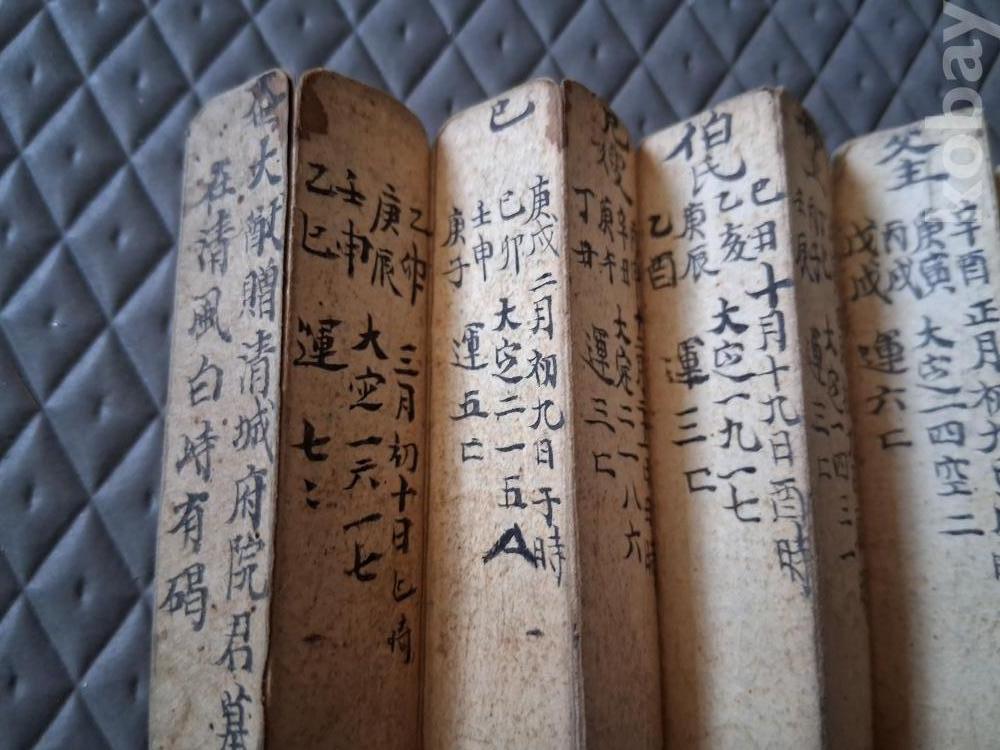 父主
辛酉 正月初
庚寅 大定一四空二
丙戌
戊戌 運六
伯氏
己丑 十月十九日酉時
乙亥 大定一九一七
庚辰
乙酉 運三
辛丑 大定二一八六
庚午
丁丑 運三
己
庚戌 二月初九日子時
己卯 大定二一五
壬申
庚子 運五
乙卯 三月初十日巳時
庚辰 大定一六一七
壬申
乙巳 運七
大獻贈清城府院君墓
在清風白峙有碣
kobay